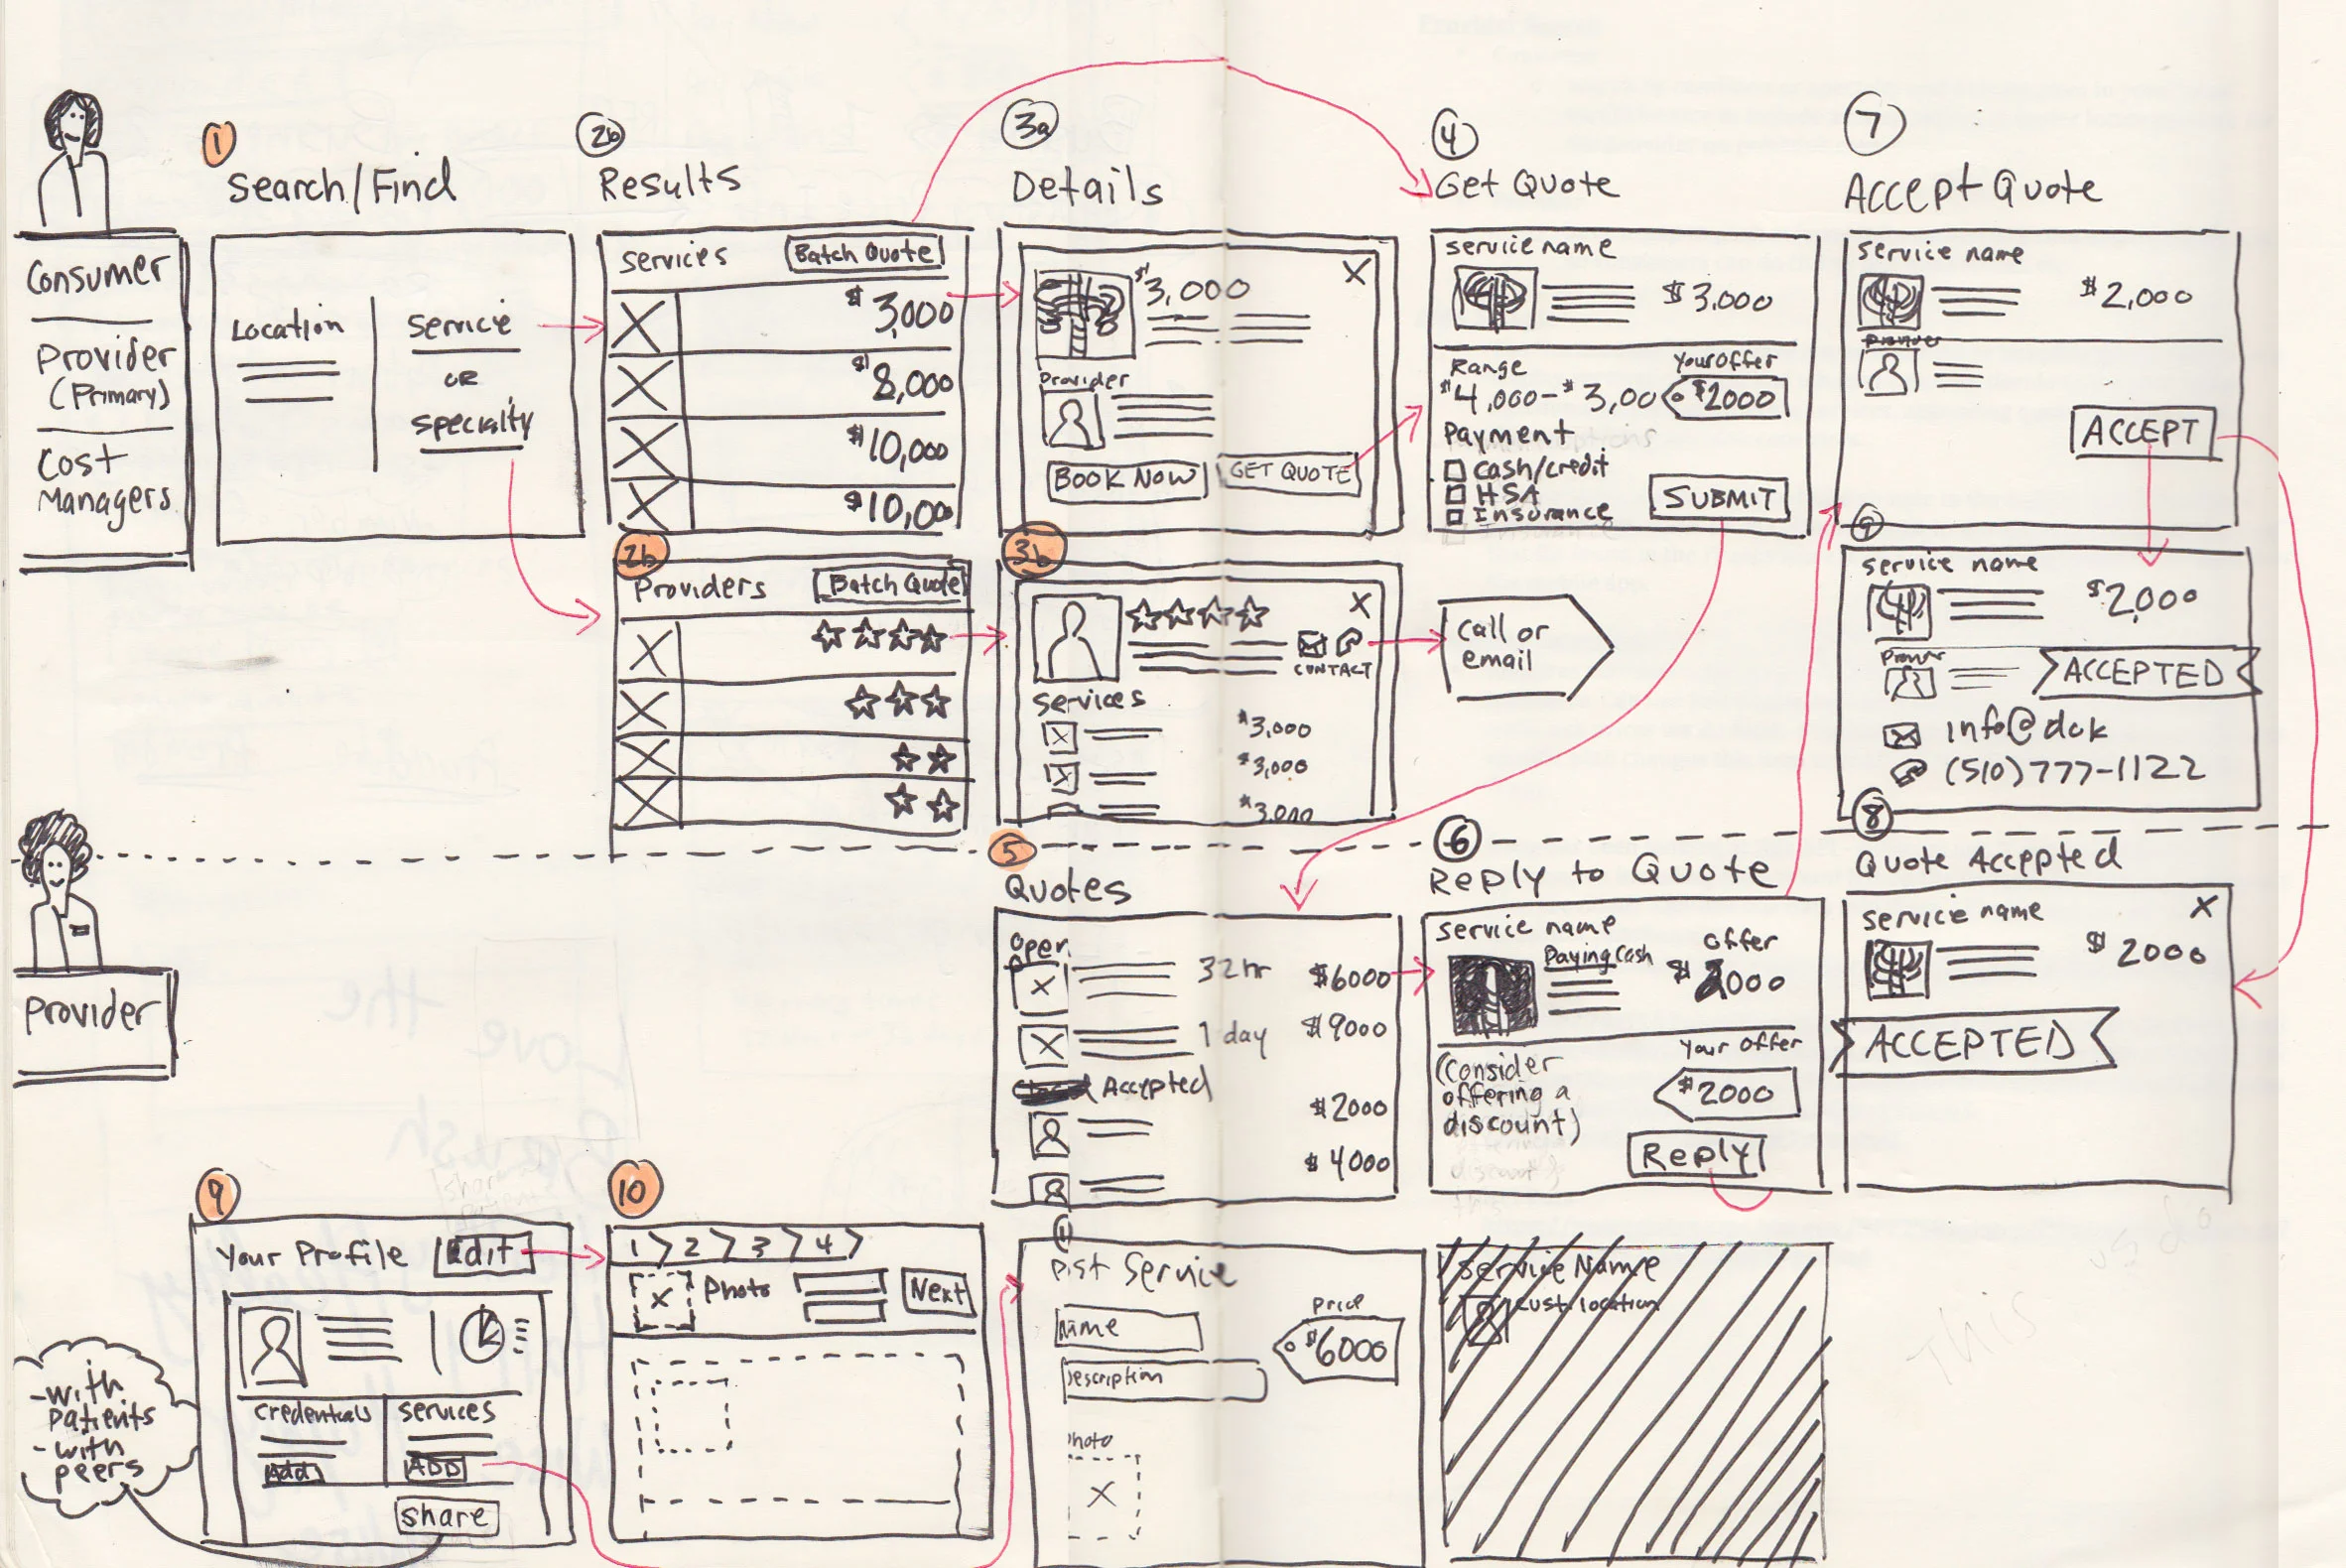 Consumer
Provider
(Primary)
Cost
Managers
1
Search/Find
Location
Service
OR
specialty
2b
Results
Services
Batch Quote
$3,000
$8,000
$10,000
$10,000
2b
Providers
Batch Quote
3a
Details
$3,000
X
Provider
BOOK NOW
GET QUOTE
3b
X
CONTACT
Services
$3,000
$3,000
$3,000
Call or
email
4
Get Quote
Service name
$3,000
Range
Your Offer
$4,000-$3,00
$2000
Payment
Cash/credit
HSA
Insurance
SUBMIT
7
Accept Quote
Service name
$2,000
Provider
ACCEPT
9
Service name
$2,000
ACCEPTED
info@dok
(510)777-1122
Provider
5
Quotes
Open
32hr
$6000
1 day
$9000
Accepted
$2000
$4000
6
Reply to Quote
Service name
Paying Cash
Offer
$2000
(Consider
offering a
discount)
Your Offer
$2000
Reply
8
Quote Accepted
Service name
X
$2000
ACCEPTED
-with
patients
-with
peers
9
Your Profile
Edit
Credentials
Services
Add
ADD
Share
10
1 > 2 > 3 > 4 >
Photo
Next
11
Post Service
Name
Description
Price
$6000
Photo
Service Name
Cust. location